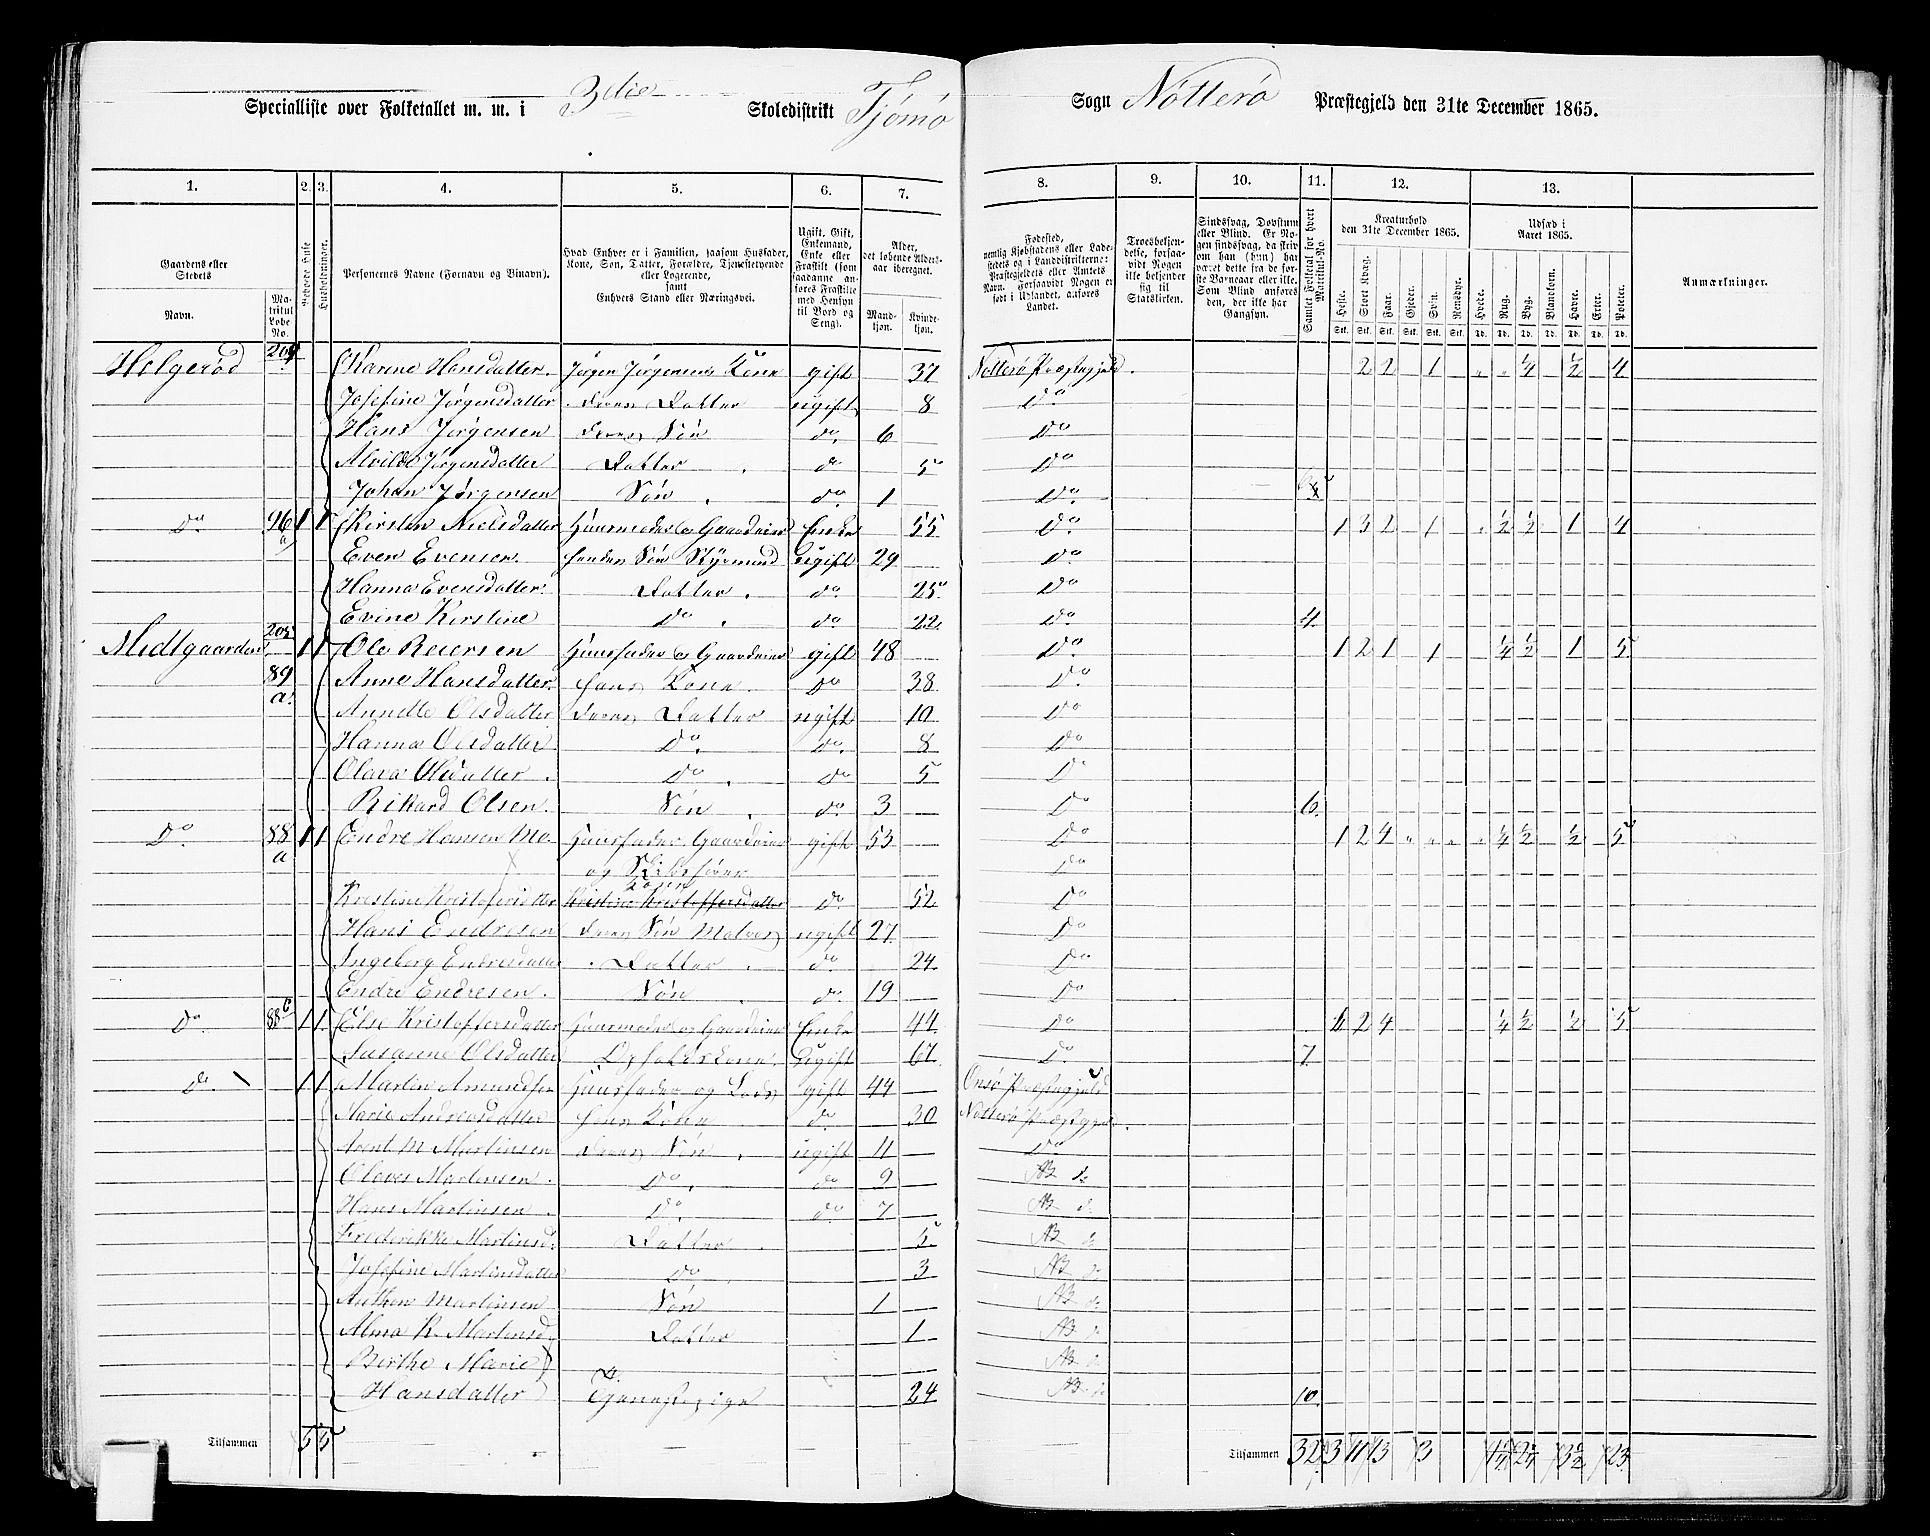 Specialliste over Folketallet m. m. i 3die Skoledistrikt Tjømø Sogn Nøtterø Præstegjeld den 31te December 1865.
1. 2. 3. 4. 5. 6. 7. 8. 9. 10. 11. 12. 13.
Gaardens eller Stedets
Navn.
Matrikul Løbe No.
Beboede Huse
Husholdninger.
Personernes Navne (Fornavn og Tilnavn).
Hvad Enhver er i Familien, saasom Husfader, Kone, Søn, Datter, Forældre, Tjenestetyende eller Logerende, samt Enhvers Stand eller Næringsvei.
Ugift, Gift, Enkemand, Enke eller Fraskilt (som saadanne anføres Fraskilte med Hensyn til Bord og Seng).
Alder, det løbende Aldersaar iberegnet.
Mandkjøn. Kvindekjøn.
Fødested, nemlig Kjøbstadens eller Ladestedets eller i Landdistrikterne: Præstegjeldets eller Amtets Navn. Forsaavidt Nogen er født i Udlandet, anføres Landet.
Troesbekjendelse, forsaavidt Nogen ikke bekjender sig til Statskirken.
Sindssvag, Døvstum eller Blind. Er Nogen sindssvag, da skriv om han (hun) har været dette fra de første Barneaar eller ikke. Som Blind anføres den, der ikke har Gangsyn.
Samlet Folketal for hvert Matrikul-No.
Kreaturhold den 31te December 1865.
Heste. Stort Kvæg. Faar. Gjeder. Svin. Rensdyr.
Udsæd i Aaret 1865.
Hvede. Rug. Byg. Blandkorn. Havre. Erter. Poteter.
Anmærkninger.
Holgerød 204 Karine Hansdatter. Jørgen Jørgensens Kone gift 37 Nøtterø Præstegjeld. 2 2 - 1 " " 1/4 1/2 4
Josefine Jørgensdatter deres Datter ugift 8 Do
Hans Jørgensen deres Søn do. 6 Do
Alvilde Jørgensdatter Datter do 5 Do
Johan Jørgensen Søn do. 1 Do.
Do. 96 a 1 1 Kirsten Nielsdatter Huusmoder og Gaardeier Enke 55 Do. 1 3 2 - 1 - " 1/2 1/2 1 4
Even Evensen. hendes Søn Styrmand Ugift 29 Do
Hanna Evensdatter. Datter. do. 25 Do
Evine Kirstine Do. do 22 Do. 4.
Midtgaarden 205 89 a. 1 1 Ole Reiersen Huusfader og Gaardeier gift 48 Do. 1 2 1 1 1/4 1/2 1 5
Anne Hansdatter. hans Kone. Do 38 Do.
Annette Olsdatter deres Datter ugift 10 Do
Hanna Olsdatter Do. Do. 8 Do
Olava Olsdatter. Do. Do 5 Do
Rikard Olsen. Søn do 3 Do 6.
Do. 88 a 1 1 Endre Hansen Mo. Huusfader Gaardeier gift 53 Do 1 2 4 " " " " 1/4 1/2 1/2 5
og Skibsfører Do
Kone
Kristine Kristofersdatter Kristine Kristoffersdatter do. 52 Do
Hans Endresen deres Søn Matros ugift 27 Do
Ingeborg Endresdatter Datter do. 24 Do
Endre Endresen. Søn do. 19 Do
Do. 88 c 1 1. Else Kristoffersdatter Huusmoder og Gaardeier Enke 44 Do 1 2 4 1/4 1/2 1/2 5
Susanne Olsdatter Ugift 67 Do 7.
do. 1 1 Martin Amundsen Huusfader og Lods gift 44 Onsø Præstegjeld
Marie Andreasdatter hans Kone do. 30 Nøtterø Præstegjeld.
Arent M Martinsen deres Søn ugift 11 Do
Olaves Martinsen. Do. do 9
Hans Martinsen. Do. do 7
Frederikke Martinsd. Datter 5
Josefine Martinsdatter Do 3
Anthon Martinsen Søn 1
Alma K. Martinsd. Datter 1
Birthe Marie
Hansdatter Tjenestepige 24 10.
Tilsammen 5 5
Tilsammen 32. 3 11 13 3 23